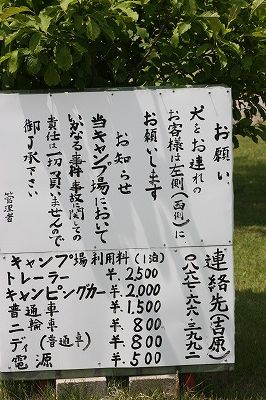 お願い
犬をお連れの
お客様は左側(西側)に
お願いします
お知らせ
当キャンプ場において
いかなる事件事故に関しての
責任は一切負いませんので
御了承下さい
管理者
連絡先(吉原)
〇八六七-六六-三九九二
キャンプ場利用料(1泊)
トレーラー ¥.2,500
キャンピングカー ¥.2,000
普通車 ¥.1,500
二輪 ¥.800
ディ(普通車) ¥.800
電源 ¥.500